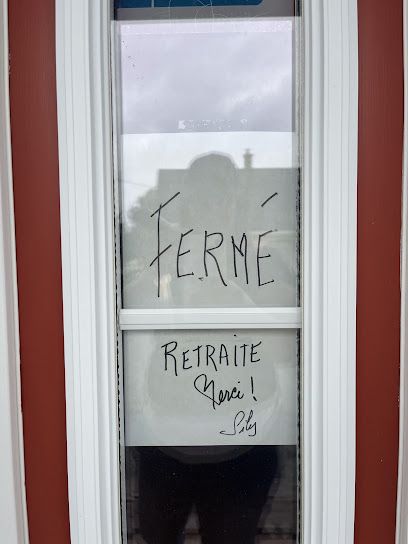 FERMÉ
RETRAITE
Merci !